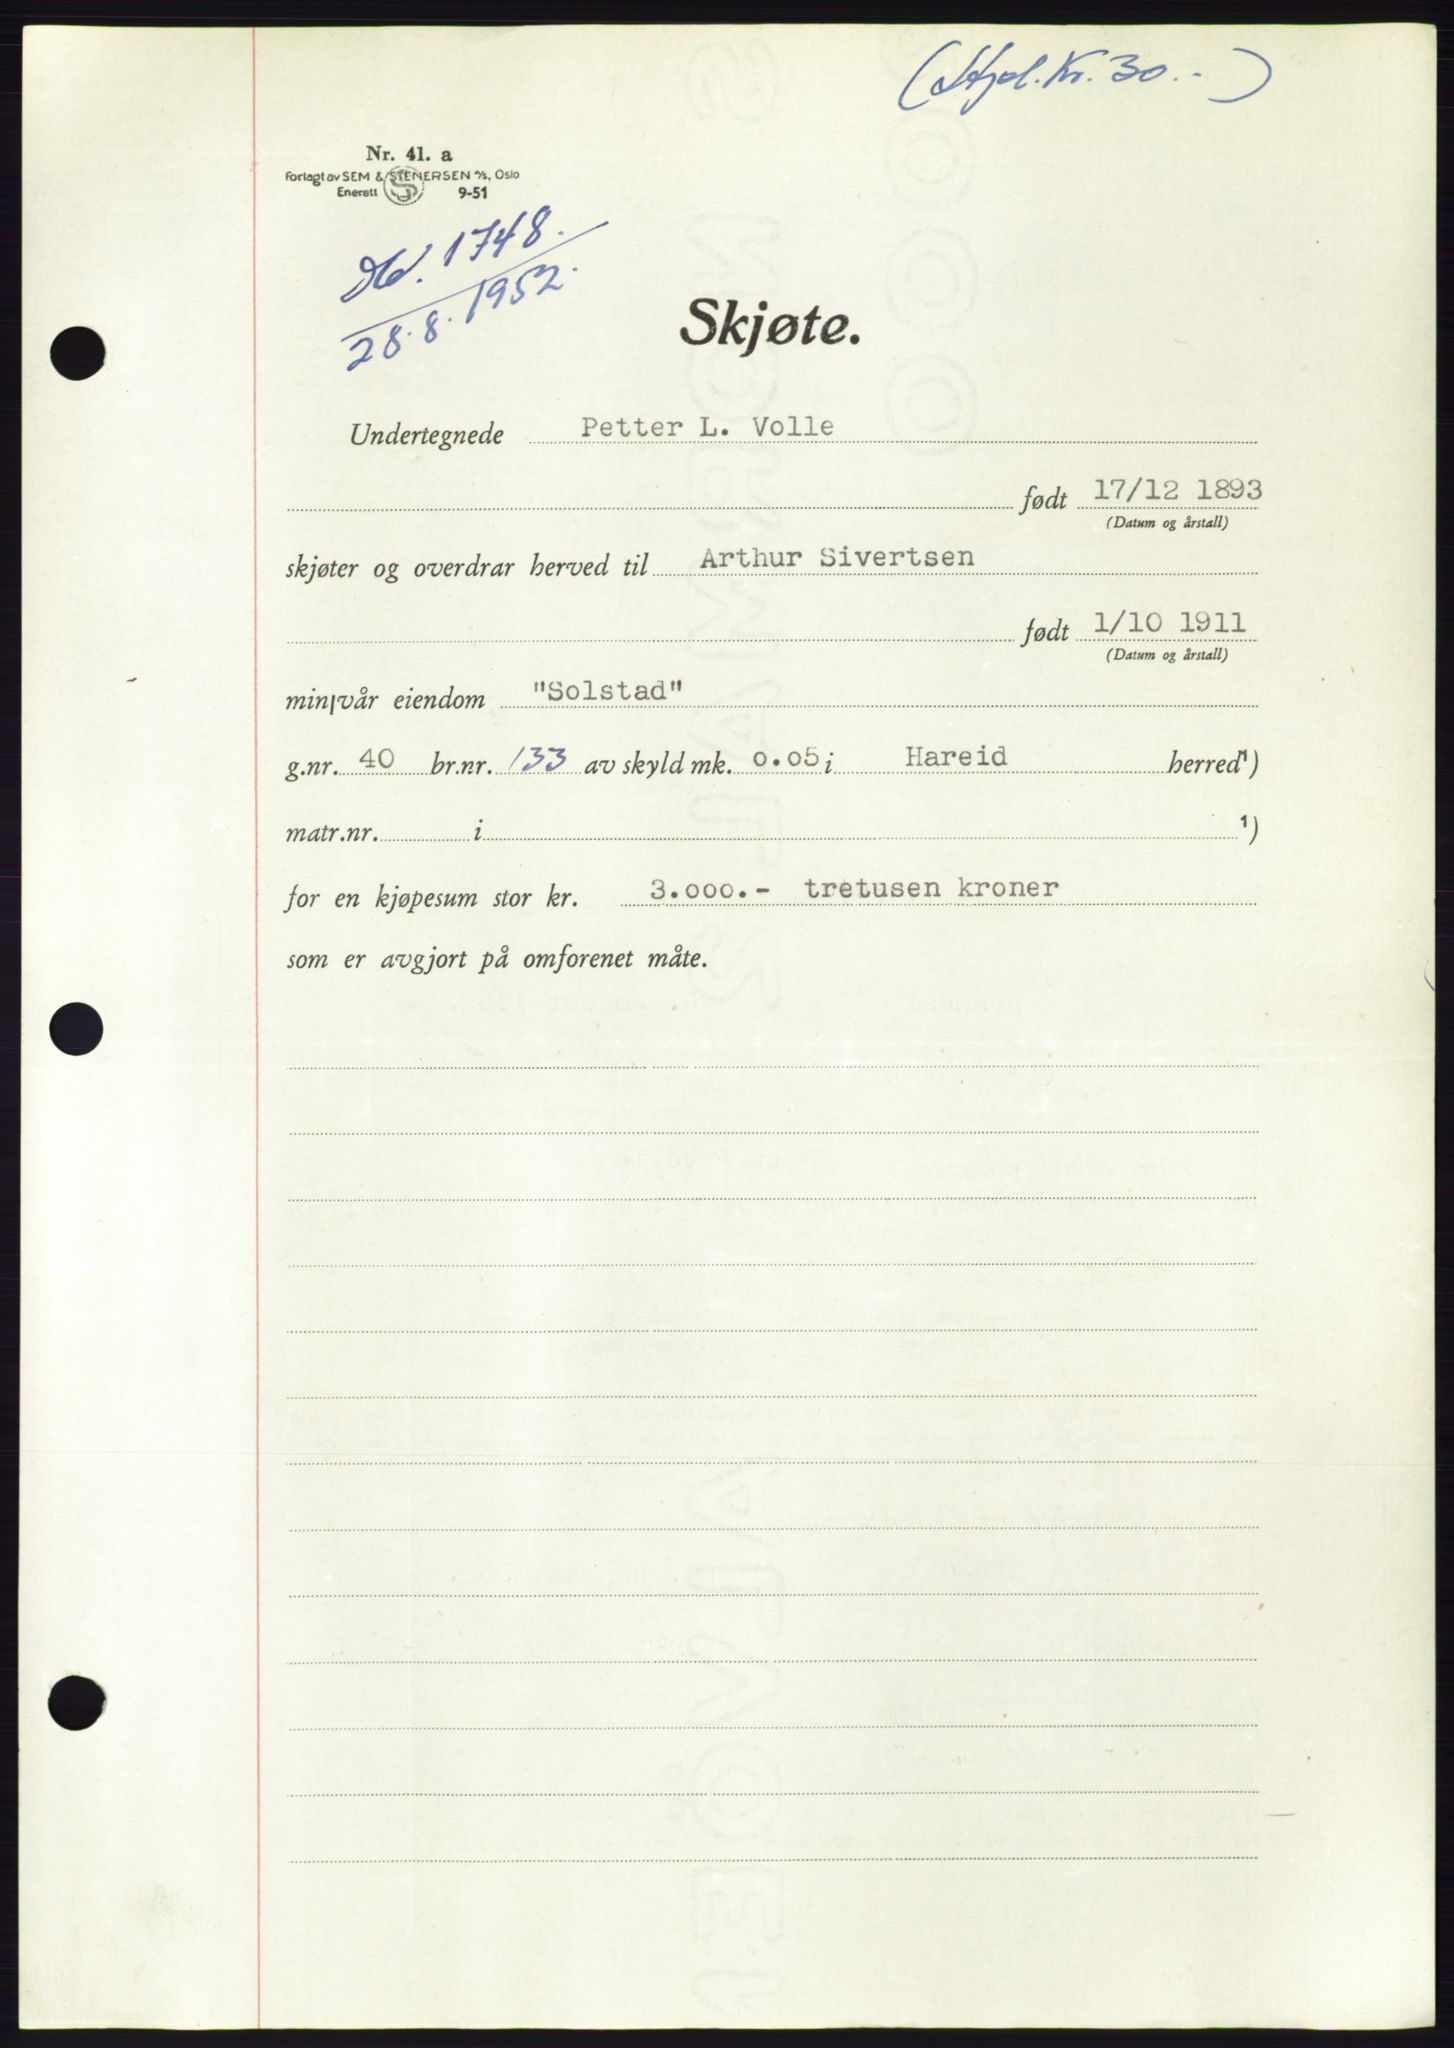 (Stpl. Kr. 30.-)
Nr. 41. a
Forlagt av SEM & STENERSEN A/S, Oslo
Enerett 9-51
1748.
28.8.1952.
Skjøte.
Undertegnede Petter L. Volle
født 17/12 1893
(Datum og årstall)
skjøter og overdrar herved til Arthur Sivertsen
født 1/10 1911
(Datum og årstall)
min/vår eiendom "Solstad"
g.nr. 40 br.nr. 133 av skyld mk. 0.05 i Hareid herred¹)
matr.nr. i ¹)
for en kjøpesum stor kr. 3.000.- tretusen kroner
som er avgjort på omforenet måte.